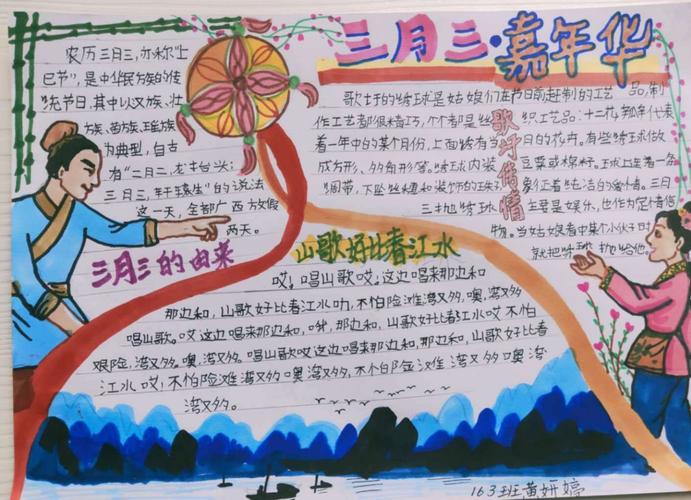 三月三·嘉年华
农历三月三，亦称"上
巳节"，是中华民族的传
统节日，其中以汉族、壮
族、苗族、瑶族
为典型，自古
有"二月二，龙抬头；
三月三，轩辕生"的说法
这一天，全部广西放假
两天。
三月三的由来
歌圩的绣球是姑娘们在节日前赶制的工艺品，制
作工艺都很精巧，个个都是丝织工艺品：十二花瓣代表
着一年中的某个月份，上面绣有当月的花卉。有些绣球做
成方形、多角形等。绣球内装豆粟或棉籽。球上连着一条
绸带，下坠丝穗和装饰的珠
象征着纯洁的爱情。三月
三抛绣球，主要是娱乐，也作为定情信
物。当姑娘看中某个小伙子时，
就把绣球抛给他。
歌圩传情
山歌好比春江水
哎，唱山歌哎。这边唱来那边和
那边和，山歌好比春江水，不怕险滩湾又多，噢，湾又多
唱山歌。哎这边唱来那边和，那边和，山歌好比春江水哎不怕
艰险，湾又多。噢，湾又多。唱山歌哎这边唱来那边和，那边和，山歌好比春
江水哎！不怕险滩湾又多噢湾又多，不怕险滩湾又多噢湾
湾又多。
163班黄妍婷